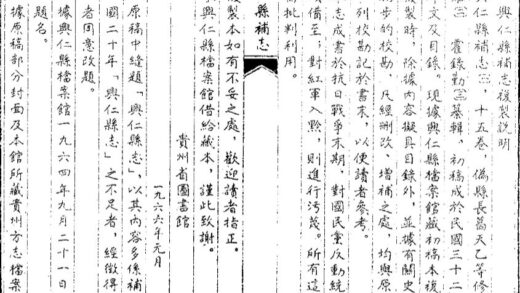 興仁縣補志復製說明
仁縣補志㈠，十五卷，偽縣長葛天乙等修
霍錄勤㈢纂輯，初稿成於民國三十二
文及目錄。現據興仁縣檔案館藏初稿本復
製時，除據內容擬具目錄外，並據有關史
步的校勘，凡經刪改、增補之處，均與原
列校勘記於書末，以便讀者參考。
志成書於抗日戰爭末期，對國民黨反動統
備至；對紅軍入黔，則進行污蔑。所有這
批判利用。
縣補志
製本如有不妥之處，歡迎讀者指正。
興仁縣檔案館借給藏本，謹此致謝。
貴州省圖書館
一九六六年元月
原稿中縫題「興仁縣志」，以其內容多係補
國二十年「興仁縣志」之不足者，經徵得
者同意改題。
據興仁縣檔案館一九六四年九月二十一日
題名。
據原稿部分封面及本館所藏貴州方志檔案